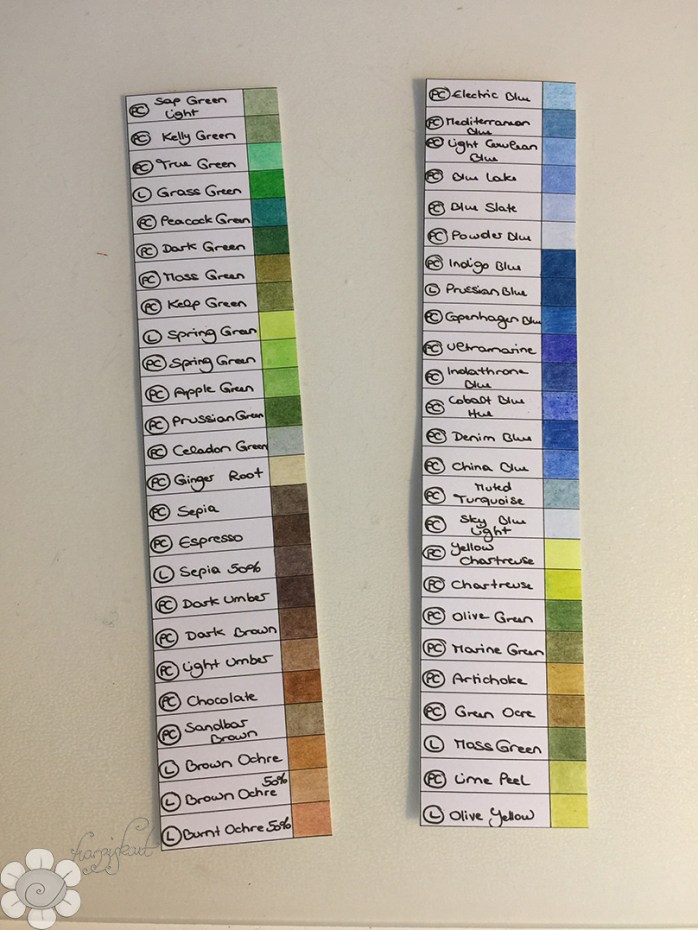 PC Sap Green
Light
PC Kelly Green
PC True Green
L Grass Green
PC Peacock Green
PC Dark Green
PC Moss Green
PC Kelp Green
L Spring Green
PC Spring Green
PC Apple Green
PC Prussian Green
PC Celadon Green
PC Ginger Root
PC Sepia
PC Espresso
L Sepia 50%
PC Dark Umber
PC Dark Brown
PC Light Umber
PC Chocolate
PC Sandbar
Brown
L Brown Ochre
50%
L Brown Ochre
L Burnt Ochre 50%
PC Electric Blue
PC Mediterranean
Blue
PC Light Cerulean
Blue
PC Blue Lake
PC Blue Slate
PC Powder Blue
PC Indigo Blue
L Prussian Blue
PC Copenhagen Blue
PC Ultramarine
PC Indathrone
Blue
PC Cobalt Blue
Hue
PC Denim Blue
PC China Blue
PC Muted
Turquoise
PC Sky Blue
Light
PC Yellow
Chartreuse
PC Chartreuse
PC Olive Green
PC Marine Green
PC Artichoke
PC Green Ocre
L Moss Green
PC Lime Peel
L Olive Yellow